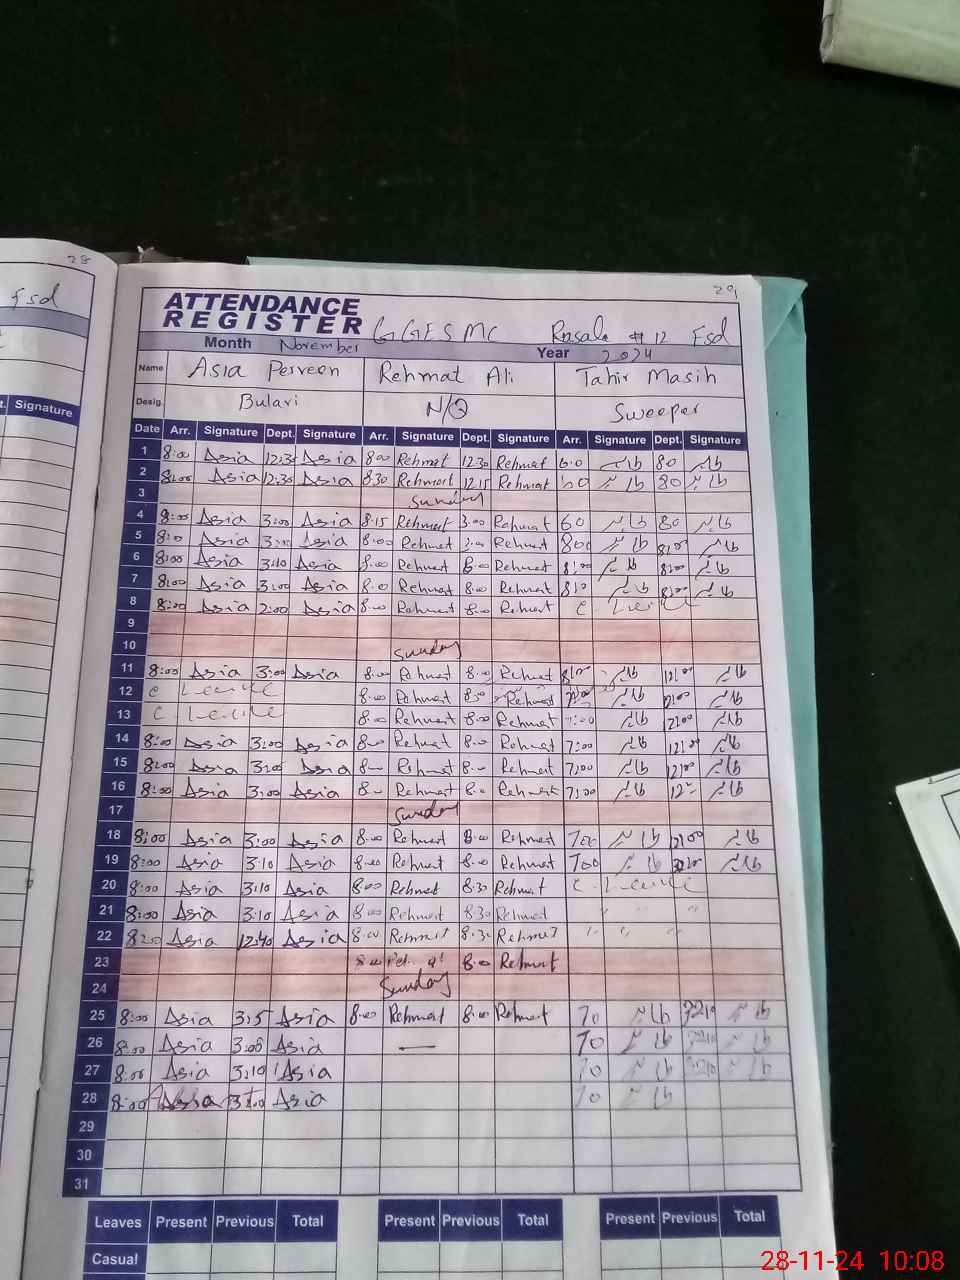 28
Fsd
Signature
29
ATTENDANCE
REGISTER GGESMC Rasala # 12 Fsd
Month November Year 2024
Name Asia Perveen Rehmat Ali Tahir Masih
Desig. Bulavi N/Q Sweeper
Date Arr. Signature Dept. Signature Arr. Signature Dept. Signature Arr. Signature Dept. Signature
1 8:00 Asia 12:30 Asia 8:00 Rehmat 12.30 Rehmat 60 طاہر 80 طاہر
2 8:00 Asia 12:30 Asia 8:30 Rehmat 12.15 Rehmat 60 طاہر 80 طاہر
3 Sunday
4 8:00 Asia 3:00 Asia 8.15 Rehmat 3.00 Rehmat 60 طاہر 80 طاہر
5 8:0 Asia 3:00 Asia 8:00 Rehmat Rehmat 800 طاہر 8:00 طاہر
6 8:00 Asia 3:10 Asia 8:00 Rehmat 8:00 Rehmat 8:00 طاہر 8:00 طاہر
7 8:00 Asia 3:00 Asia 8:00 Rehmat 8:00 Rehmat طاہر 8:00 طاہر
8 8:00 Asia 2:00 Asia 8:00 Rehmat 8:00 Rehmat C. Leave
9
10 Sunday
11 8:00 Asia 3:00 Asia 8:00 Rehmat 8:00 Rehmat 8:00 طاہر 12:00 طاہر
12 C Leave 8:00 Rehmat Rehmat طاہر 12:00 طاہر
13 C Leave 8:00 Rehmat 8:00 Rehmat 7:00 طاہر 12:00 طاہر
14 8:00 Asia 3:00 Asia 8:00 Rehmat 8:00 Rehmat 7:00 طاہر 12:00 طاہر
15 8:00 Asia 3:00 Asia 8:00 Rehmat 8:00 Rehmat 7:00 طاہر 12:00 طاہر
16 8:00 Asia 3:00 Asia 8:00 Rehmat 8:00 Rehmat 7:00 طاہر 12:- طاہر
17 Sunday
18 8:00 Asia 3:00 Asia 8:00 Rehmat 8:00 Rehmat 700 طاہر 12:00 طاہر
19 8:00 Asia 3:10 Asia 8:00 Rehmat 8:00 Rehmat 700 طاہر طاہر
20 8:00 Asia 3:10 Asia 8:00 Rehmat 8:30 Rehmat C. Leave
21 8:00 Asia 3:10 Asia 8:00 Rehmat 8:30 Rehmat " " "
22 8:00 Asia 12:40 Asia 8:00 Rehmat 8:30 Rehmat " " "
23 8:00 8:00 Rehmat
24 Sunday
25 8:00 Asia 3:5 Asia 8:00 Rehmat 8:00 Rehmat 70 طاہر طاہر
26 8:00 Asia 3:00 Asia — 70 طاہر طاہر
27 8:00 Asia 3:10 Asia 70 طاہر طاہر
28 8:00 Asia Asia 70 طاہر
29
30
31
Leaves Present Previous Total Present Previous Total Present Previous Total
Casual
28-11-24 10:08